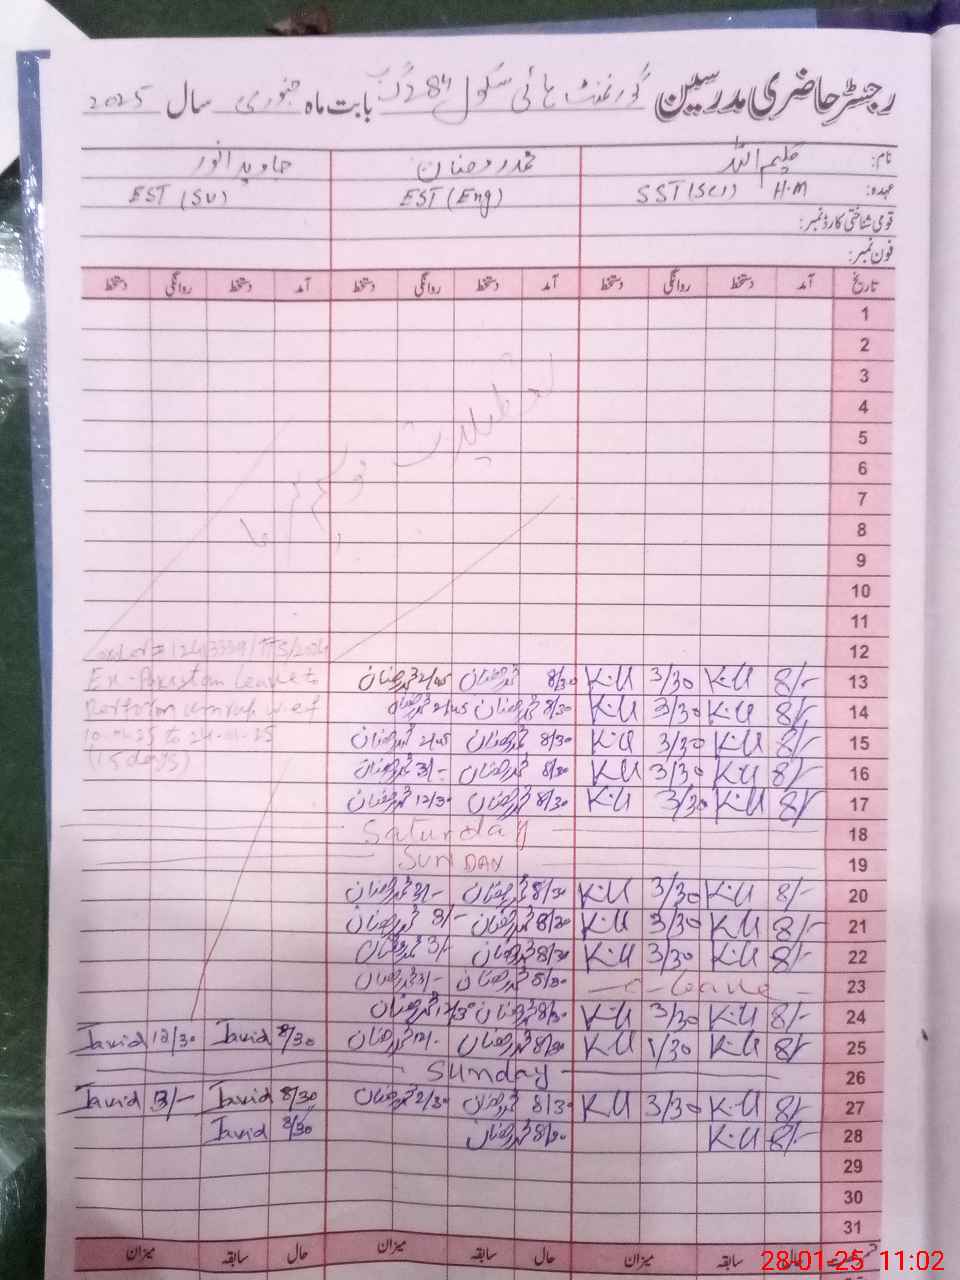 رجسٹر حاضری مدرسین گورنمنٹ ہائی سکول 287 گ ب بابت ماہ جنوری سال 2025
نام: کلیم اللہ محمد رمضان جاوید انور
عہدہ: SST(SCI) H.M EST(Eng) EST(SV)
قومی شناختی کارڈ نمبر:
فون نمبر:
تاریخ آمد دستخط روانگی دستخط آمد دستخط روانگی دستخط آمد دستخط روانگی دستخط
1
2
3
4
5
6
7
8
9
10
11
12
تعطیلات موسم سرما
Ex-Pakistan leave to
Perform umrah w.e.f
10-01-25 to 24-01-25
(15 days)
13 8/- K.U 3/30 K.U 8/30 محمد رمضان 2/45 محمد رمضان
14 8/- K.U 3/30 K.U 8/30 محمد رمضان 2/45 محمد رمضان
15 8/- K.U 3/30 K.U 8/30 محمد رمضان 2/45 محمد رمضان
16 8/- K.U 3/30 K.U 8/30 محمد رمضان 3/- محمد رمضان
17 8/- K.U 3/30 K.U 8/30 محمد رمضان 12/30 محمد رمضان
18 Saturday
19 SUNDAY
20 8/- K.U 3/30 K.U 8/30 محمد رمضان 3/- محمد رمضان
21 8/- K.U 3/30 K.U 8/30 محمد رمضان 3/- محمد رمضان
22 8/- K.U 3/30 K.U 8/30 محمد رمضان 3/- محمد رمضان
23 C-leave محمد رمضان 3/- محمد رمضان
24 8/- K.U 3/30 K.U 8/30 محمد رمضان 12/30 محمد رمضان
25 8/- K.U 1/30 K.U 8/30 محمد رمضان 12/- محمد رمضان 8/30 Javid 12/30 Javid
26 Sunday
27 8/- K.U 3/30 K.U 8/30 محمد رمضان 2/30 محمد رمضان 8/30 Javid 3/- Javid
28 8/- K.U 8/30 محمد رمضان 8/30 Javid
29
30
31
حال سابقہ میزان حال سابقہ میزان حال سابقہ میزان
28-01-25 11:02